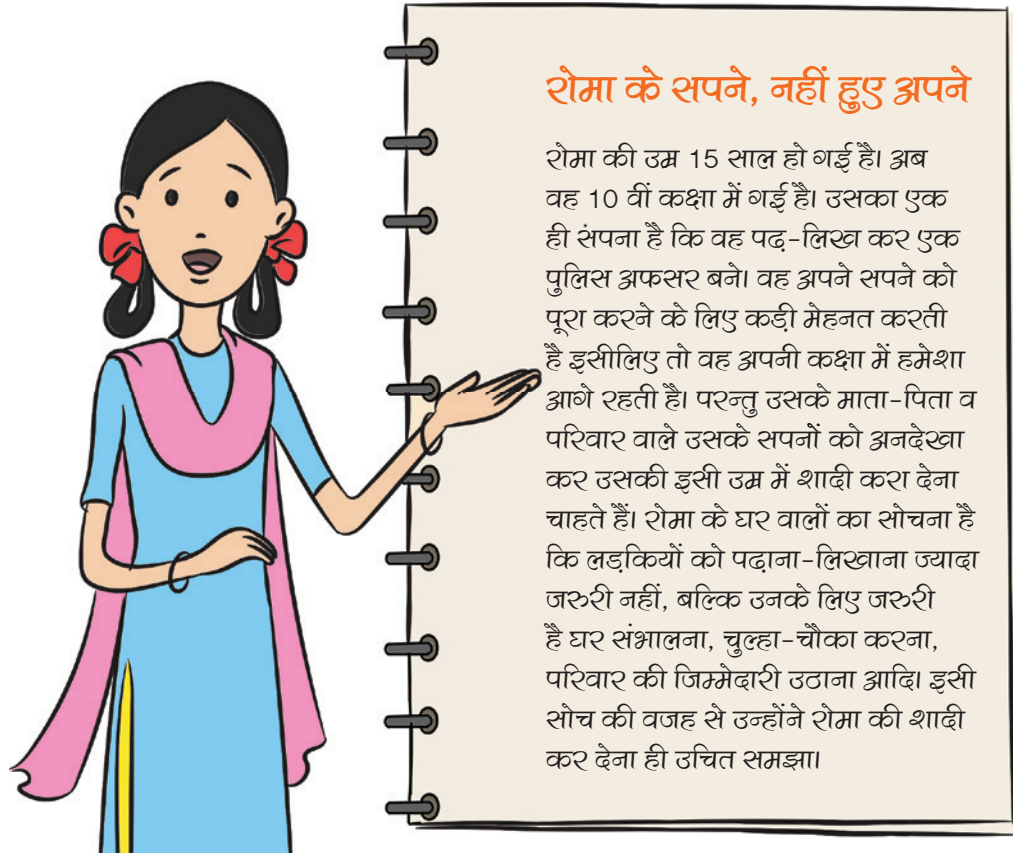 रोमा के सपने, नहीं हुए अपने
रोमा की उम्र 15 साल हो गई है। अब
वह 10 वीं कक्षा में गई है। उसका एक
ही संपना है कि वह पढ़-लिख कर एक
पुलिस अफसर बने। वह अपने सपने को
पूरा करने के लिए कड़ी मेहनत करती
है इसीलिए तो वह अपनी कक्षा में हमेशा
आगे रहती है। परन्तु उसके माता-पिता व
परिवार वाले उसके सपनों को अनदेखा
कर उसकी इसी उम्र में शादी करा देना
चाहते हैं। रोमा के घर वालों का सोचना है
कि लड़कियों को पढ़ाना-लिखाना ज्यादा
जरुरी नहीं, बल्कि उनके लिए जरुरी
है घर संभालना, चुल्हा-चौका करना,
परिवार की जिम्मेदारी उठाना आदि। इसी
सोच की वजह से उन्होंने रोमा की शादी
कर देना ही उचित समझा।